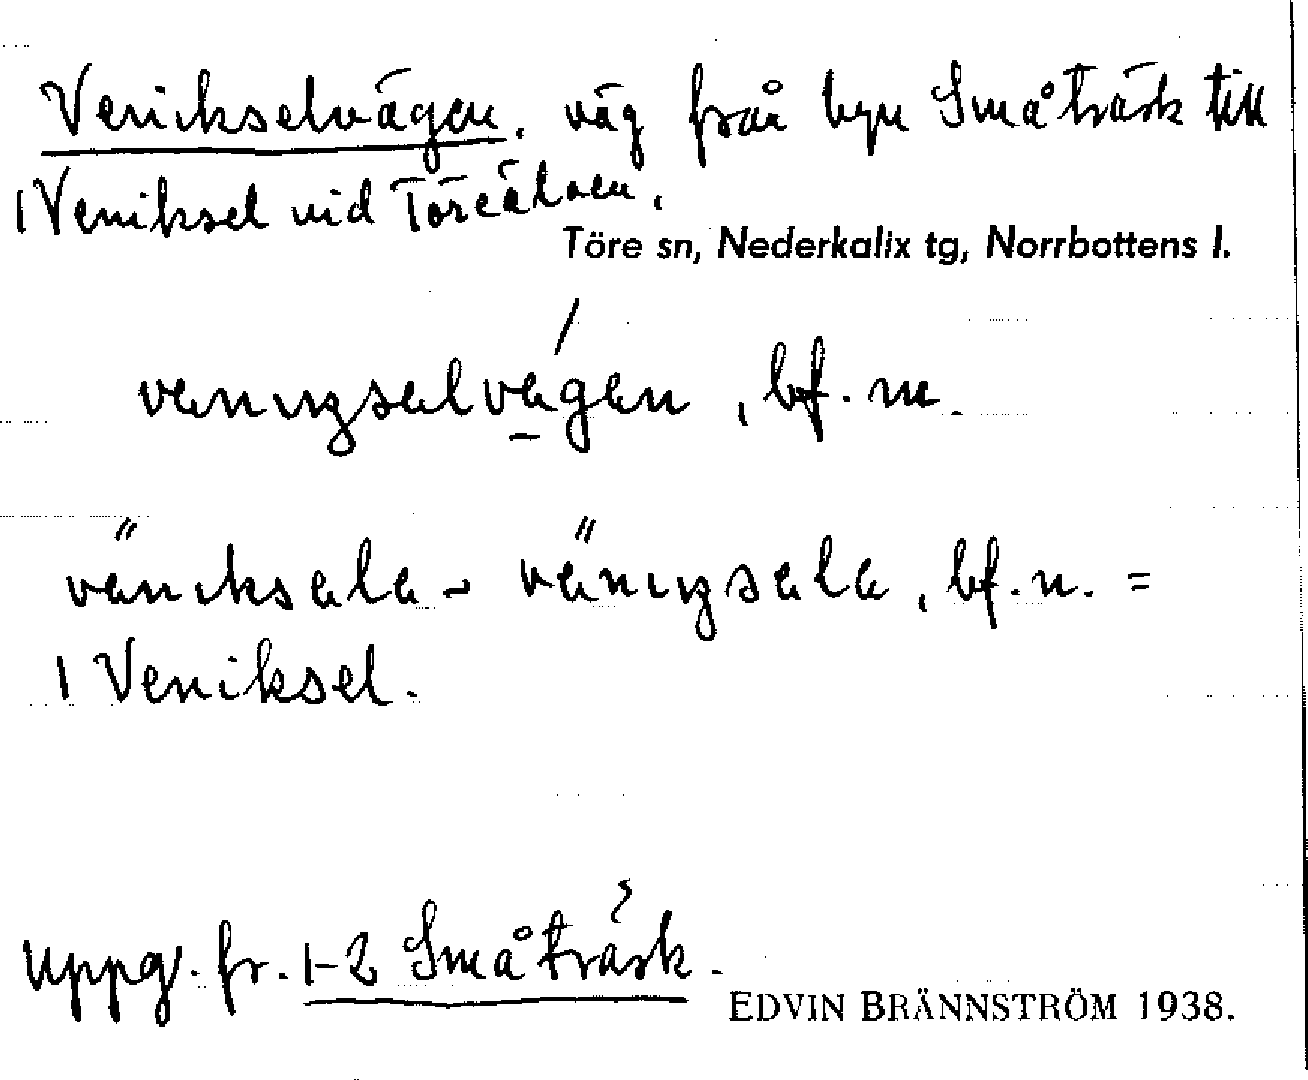 Venikselvägen, väg från byn Småträsk till
1 Veniksel vid Töreälven.
Töre sn, Nederkalix tg, Norrbottens l.
bf. m.
bf. n. =
1 Veniksel.
Uppg. fr. 1-2 Småträsk.
EDVIN BRÄNNSTRÖM 1938.